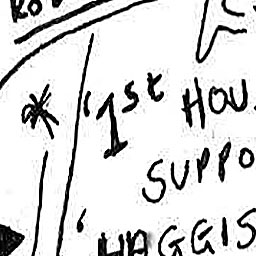 * '1st HOU
SUPPO
'HAGGIS